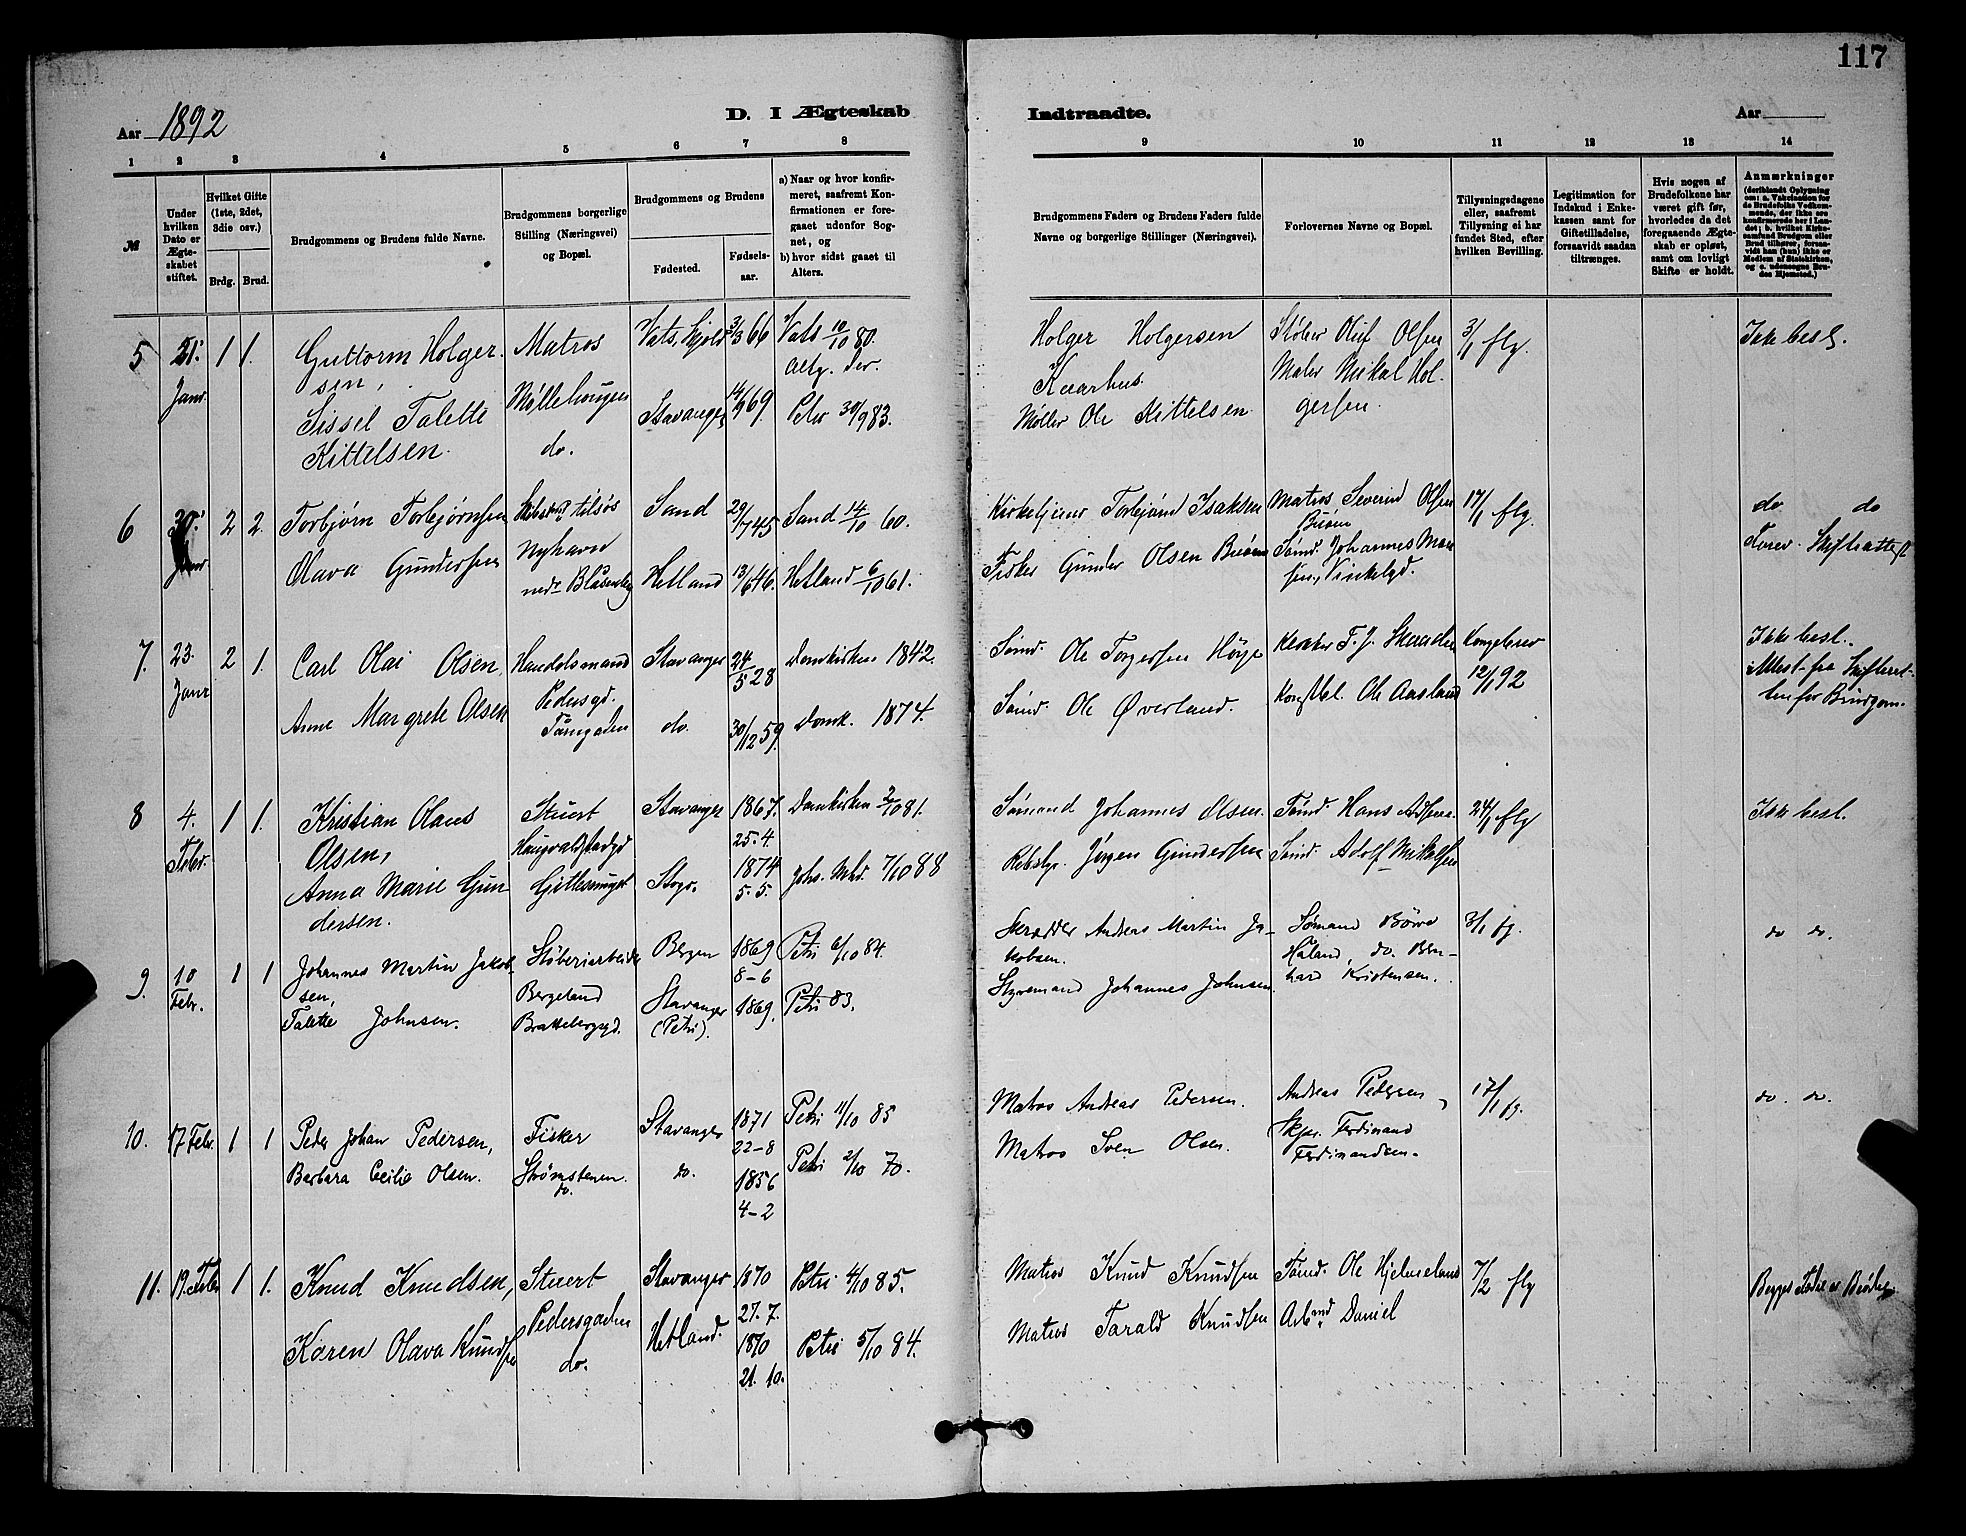 117
Aar 1892
D. I Ægteskab
Indtraadte.
Aar
1 2 3 4 5 6 7 8 9 10 11 12 13 14
№
Under hvilken Dato er Ægteskabet stiftet.
Hvilket Gifte (1ste, 2det, 3die osv.)
Brdg. Brud.
Brudgommens og Brudens fulde Navne.
Brudgommens borgerlige Stilling (Næringsvei) og Bopæl.
Brudgommens og Brudens
Fødested.
Fødselsaar.
a) Naar og hvor konfirmeret, saafremt Konfirmationen er foregaaet udenfor Sognet, og
b) hvor sidst gaaet til Alters.
Brudgommens Faders og Brudens Faders fulde Navne og borgerlige Stillinger (Næringsvei).
Forlovernes Navne og Bopæl.
Tillysningsdagene eller, saafremt Tillysning ei har fundet Sted, efter hvilken Bevilling.
Legitimation for Indskud i Enkekassen samt for Giftetilladelse, forsaavidt saadan tiltrænges.
Hvis nogen af Brudefolkene har været gift før, hvorledes da det foregaaende Ægteskab er opløst, samt om lovligt Skifte er holdt.
Anmærkninger
(deriblandt Oplysning om: a. Vakcination for de Brudefolks Vedkommende, der ikke ere konfirmerede her i Landet; b. hvilket Kirkesamfund Brudgom eller Brud tilhører, forsaavidt han (hun) ikke er Medlem af Statskirken, og c. udensogns Brudes Hjemsted.)
5 Janr. 1 1.
Guttorm Holger-
sen,
Sissel Talette
Kittelsen.
Matros
do.
Vats, Skjold
Stavanger
3/3 66
14/9 69.
Vats 10/10 80.
Petri 30/9 83.
Holger Holgersen
Møller Ole Kittelsen
Oluf Olsen
Maler Mikal Hol-
gersen.
3/1 flg.
Ikke besl.
6 Janr 2 2.
Torbjørn Torbjørnsen
Olava Gundersen
Nyhavn
nedre Blåsenborg
Sand
Hetland
29/7 45
13/6 46.
Sand 14/10 60.
Hetland 6/10 61.
Kirketjener Torbjørn Isaksen
Fisker Gunder Olsen
Matros Severin Olsen
Sømd. Johannes
17/1 flg.
do do
7. 23. Janr 2 1.
Carl Olai Olsen,
Anne Margrete Olsen
Handelsmand
Pedersgd.
Stavanger
do.
24/5 28
30/12 59.
Domkirken 1842.
Domk. 1874.
Sømd. Ole Torgersen Høye
Sømd. Ole Øverland.
Ole Aasland
Kongebrev
12/1 92
Ikke besl.
Attest fra Skifteret-
ten for Brudgom.
8 4. Febr. 1 1.
Kristian Olaus
Olsen,
Anna Marie Gun
dersen.
Stuert
Stavanger
1867.
25. 4.
1874
5. 5.
Domkirken 2/10 81.
Johs. Mkd. 7/10 88
Sømand Johannes Olsen.
Rebslgr. Jørgen Gundersen
Sømd. Adolf Mikalsen
24/1 flg
Ikke besl.
9. 10 Febr. 1 1
Johannes Martin Jakob-
sen,
Talette Johnsen.
Støberiarbeider
Bergeland
Bergen
Stavanger
(Petri).
1869
8-6
1869.
Petri 6/10 84.
Petri 83.
Skrædder Andreas Martin Ja-
kobsen.
Styremand Johannes Johnsen.
Sømand Børre
Håland, do. Bern-
hard Kristensen.
3/1 fg.
do do.
10. 17 Febr. 1 1
Peder Johan Pedersen,
Barbara Cecilie Olsen.
Fisker
Strømstenen.
do.
Stavanger
do.
1871
22-8
1856
4-2
Petri 11/10 85
Petri 2/10 70.
Matros Andreas Pedersen.
Matros Sven Olsen.
Andreas Pedersen,
Skpr. Ferdinand
Ferdinandsen.
17/1 fg.
do. do.
11. 19. Febr 1 1.
Knud Knudsen,
Karen Olava Knudsen
Stuert
Pedersgaden
do.
Stavanger
Hetland.
1870
27. 7.
1870
21. 10.
Petri 4/10 85.
Petri 5/10 84.
Matros Knud Knudsen
Matros Tarald Knudsen
Ole Hjelmeland
Arbmd. Daniel
7/2 flg